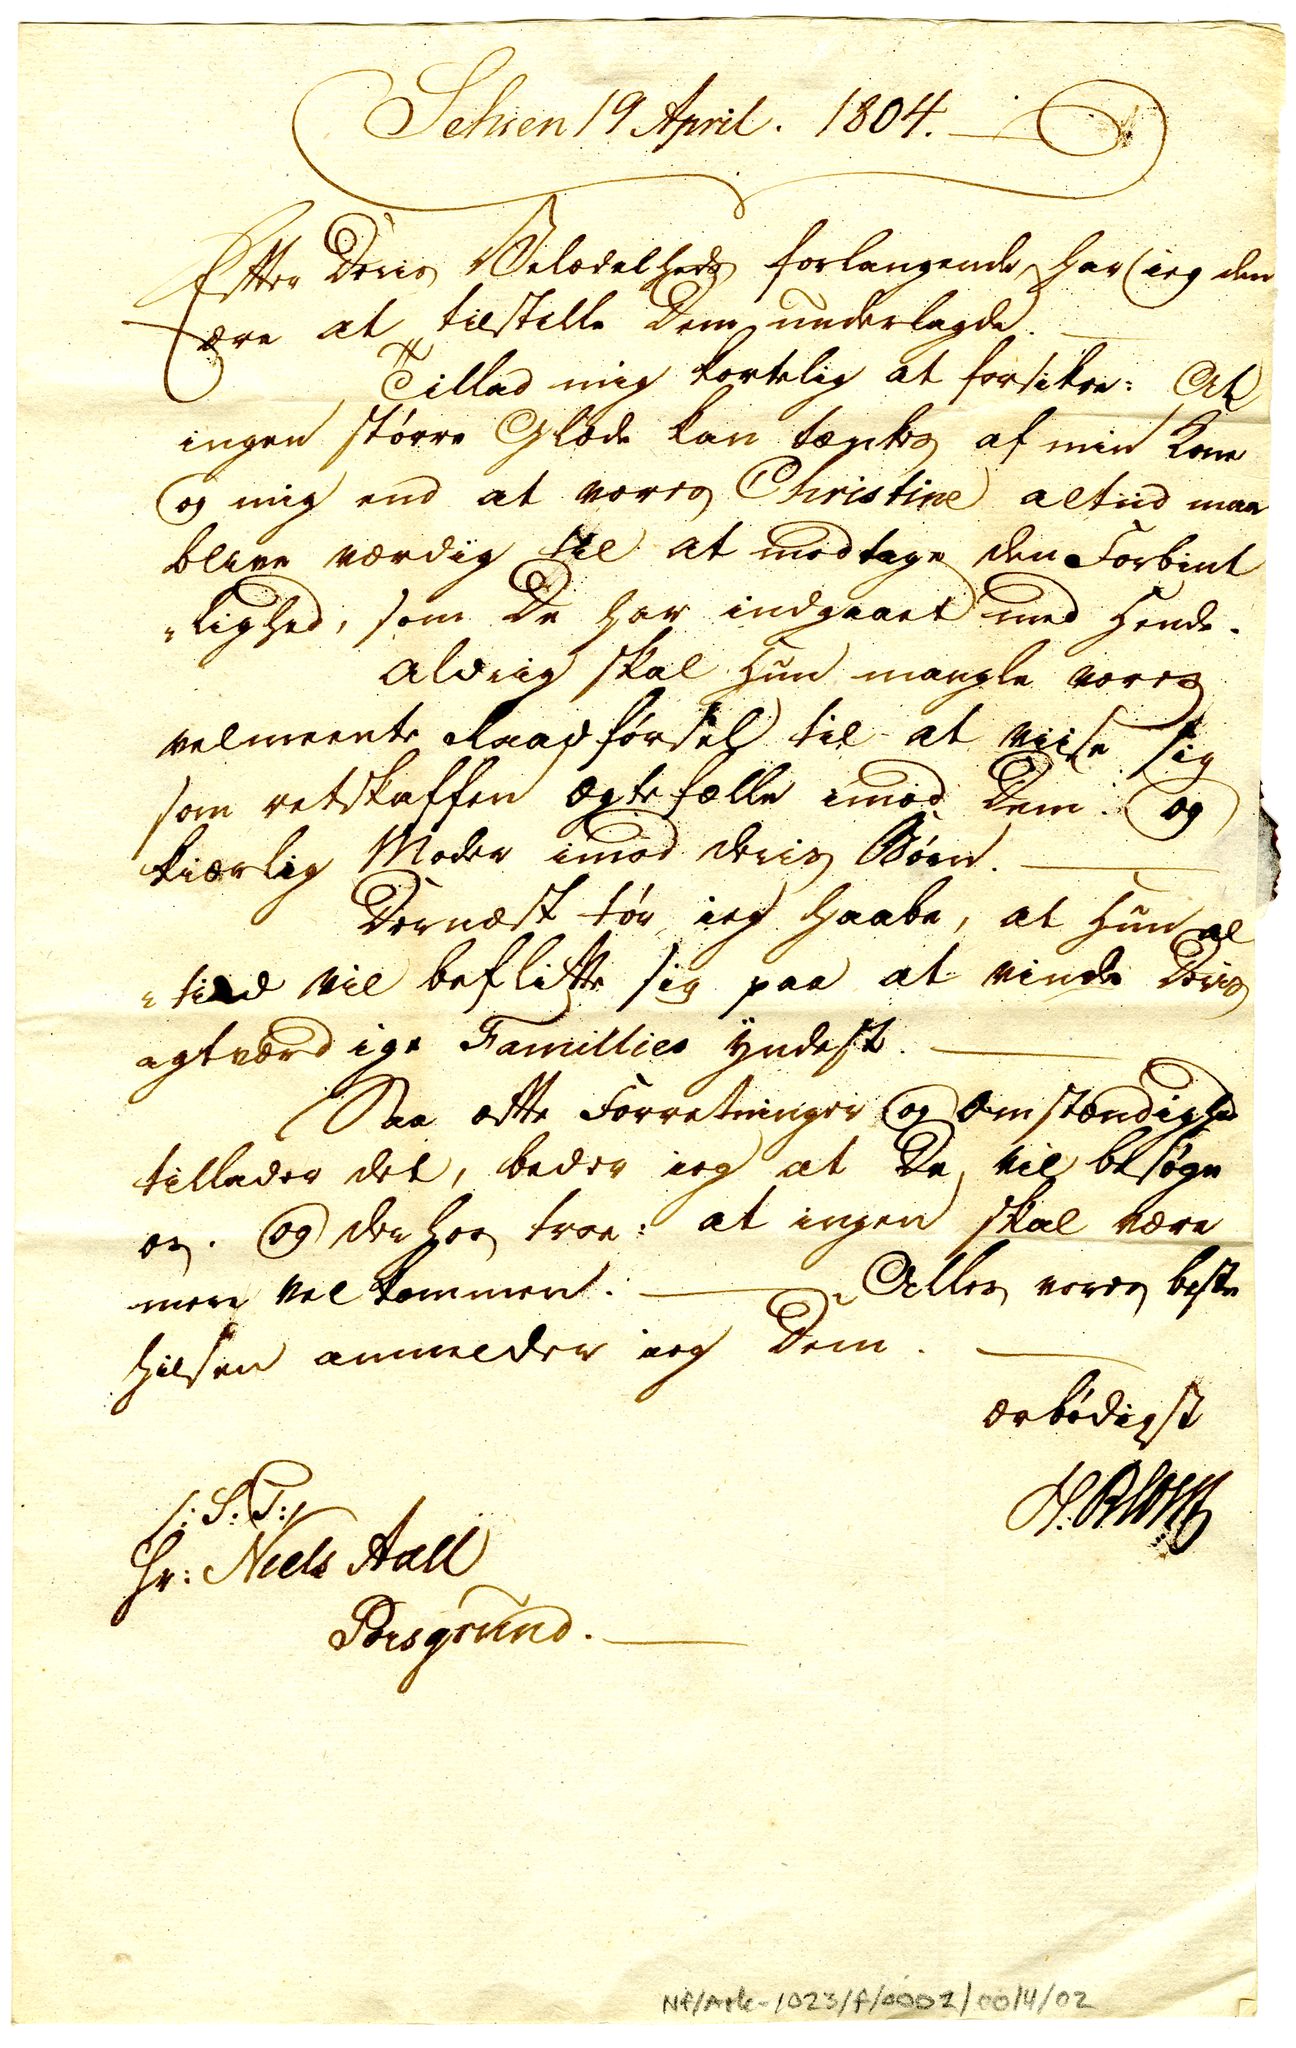 Schien 19 April. 1804.
Efter Deris Velædelheds forlangende, har ieg den
ære at tilstille Dem underlagde.
Tillad mig kortelig at forsikre: At
ingen större Glæde kan tænkes af min Kone
og mig end at vores Christine altiid maa
blive værdig til at modtage den Forbint
"lighed, som De har indgaaet med Hende.
Aldriig skal Hun mangle vores
velmeente Raadförsel til at viise sig
som retskaffen ægtefælle imod Dem: og
kiærlig Moder imod deris Börn.
Dernæst tör ieg haabe, at Hun al
"tiid vil beflitte sig paa at vinde Deris
agtværdige Famillies Yndest.
Saa ofte Forretninger og Omstændighed
tillader det, beder ieg at De vil besöge
os. og derhos troe: at ingen skal være
mere velkommen. Alles vores beste
Hilsen anmelder ieg Dem.
ærbödigst
H. Blom
/: S: T: /
Hr: Niels Aall
Porsgrund.
NF/Ark-1023/F/0002/0014/02